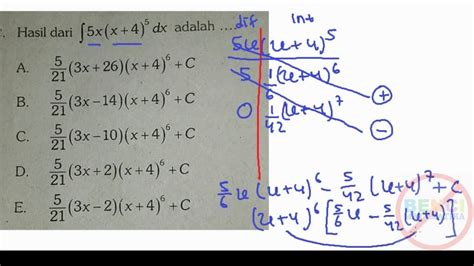 Hasil dari ∫5x(x+4)⁵ dx adalah ....
A. 5/21 (3x+26)(x+4)⁶ + C
B. 5/21 (3x−14)(x+4)⁶ + C
C. 5/21 (3x−10)(x+4)⁶ + C
D. 5/21 (3x+2)(x+4)⁶ + C
E. 5/21 (3x−2)(x+4)⁶ + C
dif int
5x (x+4)⁵
5 1/6 (x+4)⁶ +
0 1/42 (x+4)⁷ −
5/6 x (x+4)⁶ − 5/42 (x+4)⁷ + C
(x+4)⁶ [5/6 x − 5/42 (x+4)]